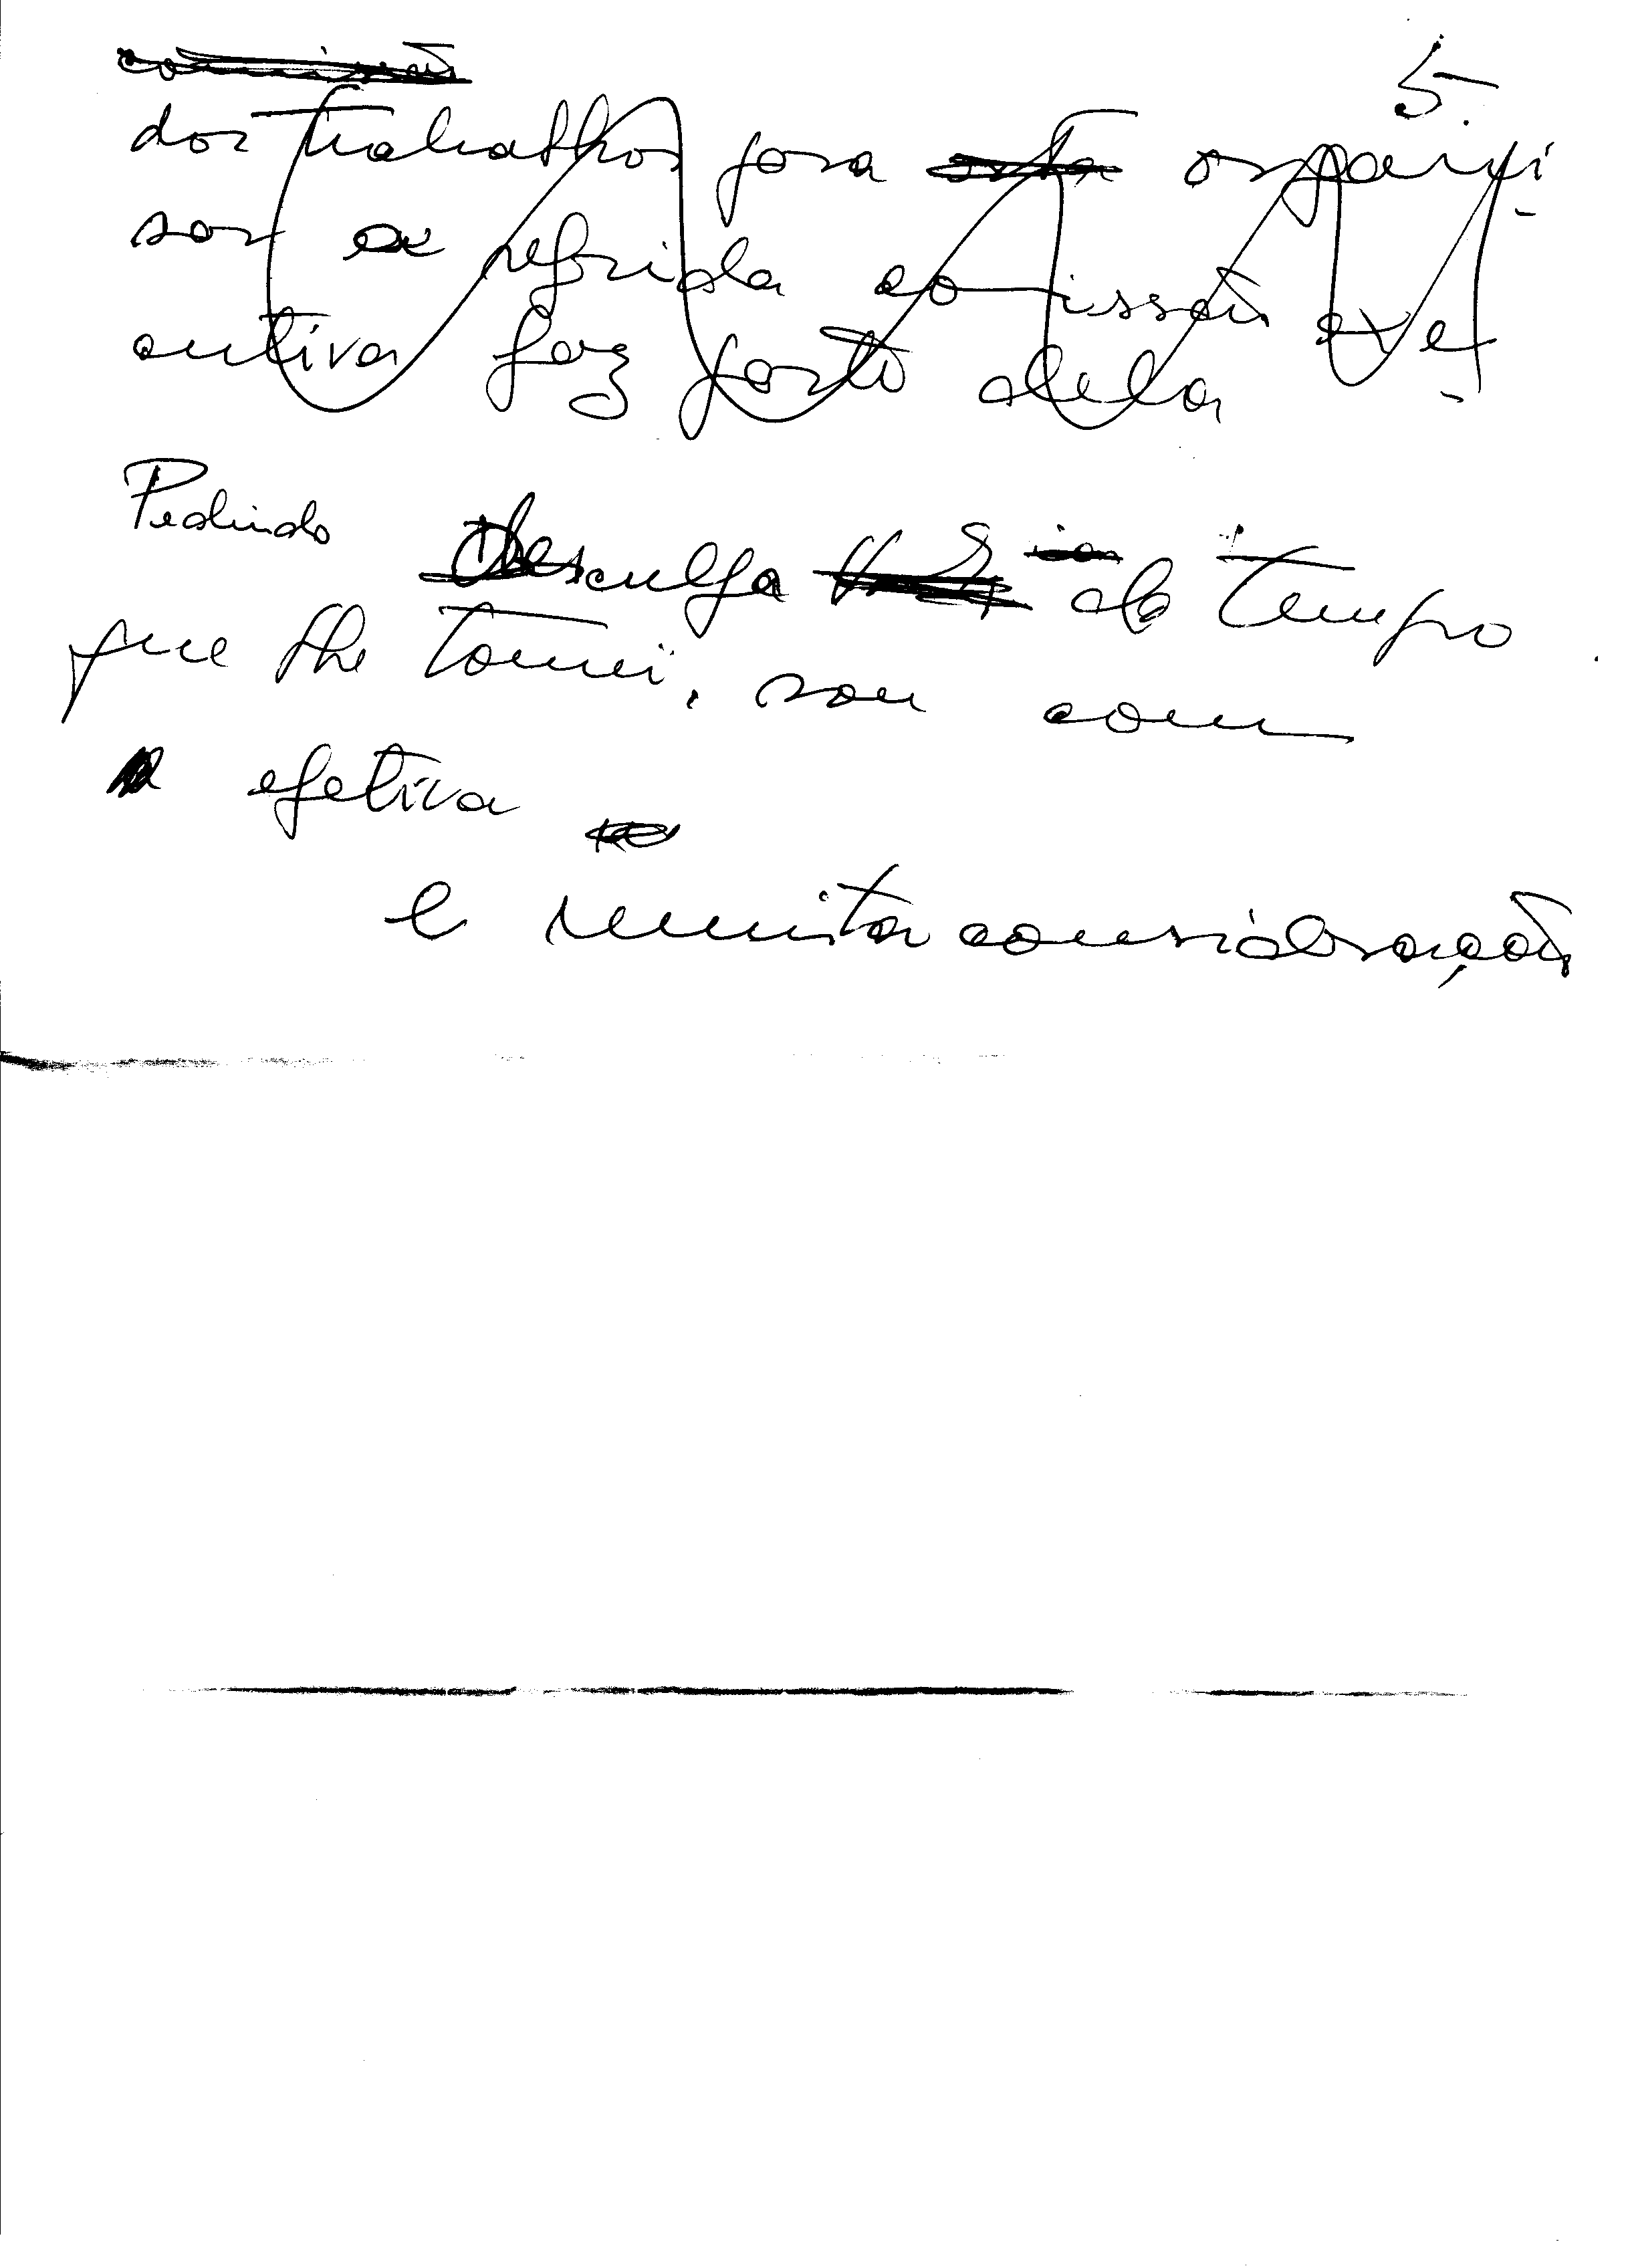 5.
comissão
dos trabalhos para esta organi
sar a referida comissão exe-
cutiva faz parte dela
Pedindo desculpa do tempo
que lhe tomei, sou com
a efetiva
e muita consideração